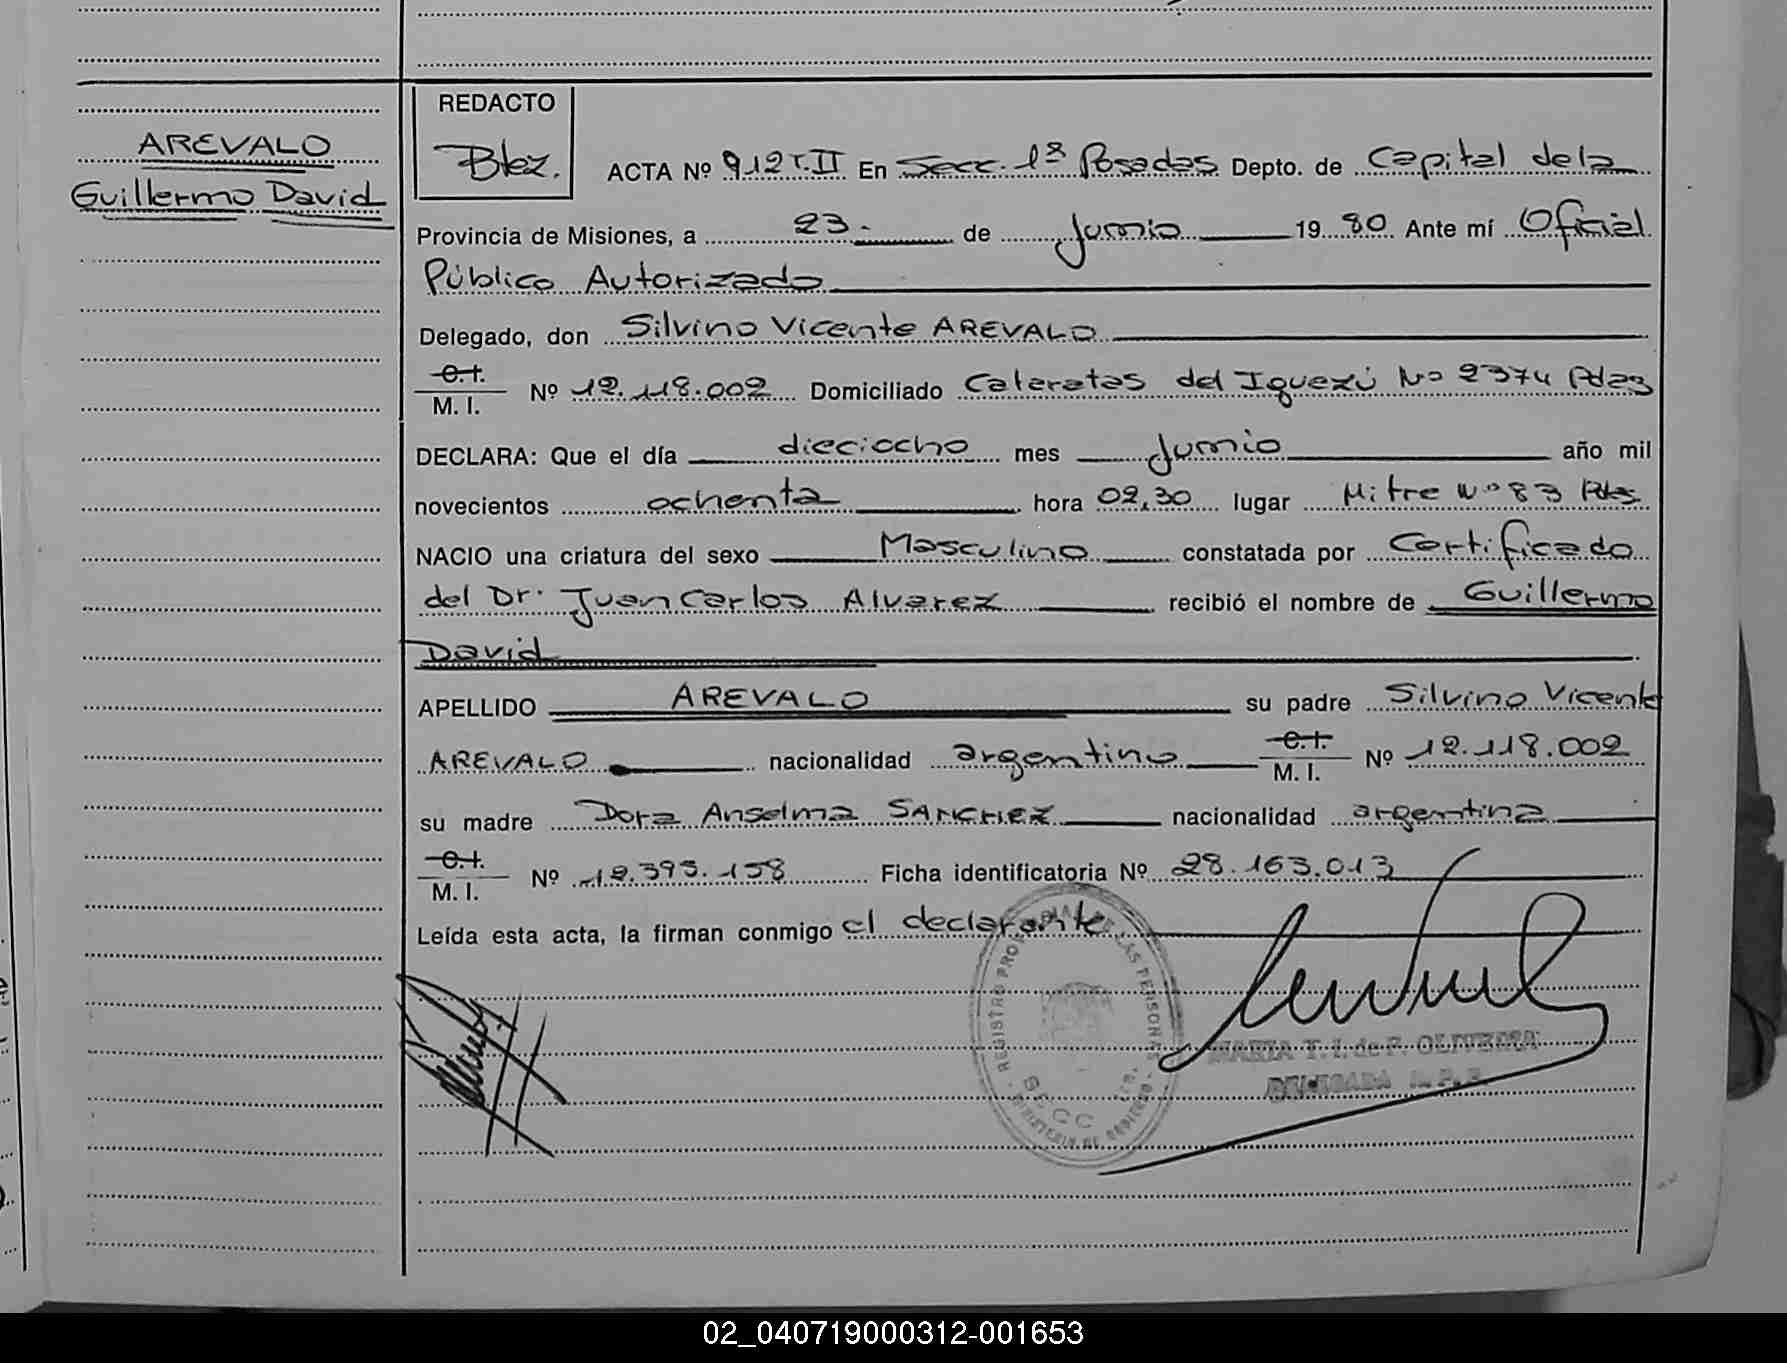 REDACTO
AREVALO
Guillermo David
Blez.
ACTA Nº 912 T.II En Secc. 1ª Posadas Depto. de Capital de la
Provincia de Misiones, a 23.- de Junio 19 80 Ante mí Oficial
Público Autorizado
Delegado, don Silvino Vicente AREVALO
C.I.
M. I. Nº 12.118.002 Domiciliado Cataratas del Iguazú Nº 2374 Pdas
DECLARA: Que el día dieciocho mes Junio año mil
novecientos ochenta hora 02,30 lugar Mitre Nº 83 Pdas.
NACIO una criatura del sexo Masculino constatada por Certificado
del Dr. Juan Carlos Alvarez recibió el nombre de Guillermo
David
APELLIDO AREVALO su padre Silvino Vicente
AREVALO nacionalidad argentino C.I. M. I. Nº 12.118.002
su madre Dora Anselma SANCHEZ nacionalidad argentina
C.I.
M. I. Nº 12.393.158 Ficha identificatoria Nº 28.163.013
Leída esta acta, la firman conmigo el declarante
REGISTRO PROVINCIAL DE LAS PERSONAS
SECC. 1ra.
MINISTERIO DE GOBIERNO
MARIA T. I. de F. OLIVEIRA
DELEGADA R. P. P.
02_040719000312-001653